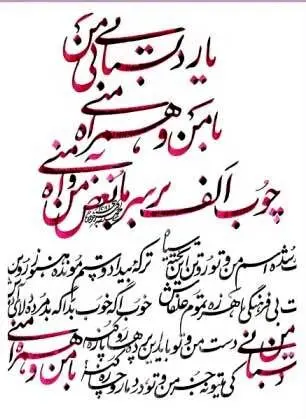 یار دبستانی من
با من و همراه منی
چوب الف بر سر ما بغض من و آه منی
حک شده اسم من و تو رو تن این تخته سیاه ترکه بیداد و ستم مونده هنوز رو تن
دشت بی فرهنگی ما هرزه تموم علفاش خوب اگه خوب بد اگه بد مرده دلای
دست من و تو باید این پرده ها رو پاره کنه
کی میتونه جز من و تو درد ما رو چاره کنه
یار دبستانی من
با من و همراه منی